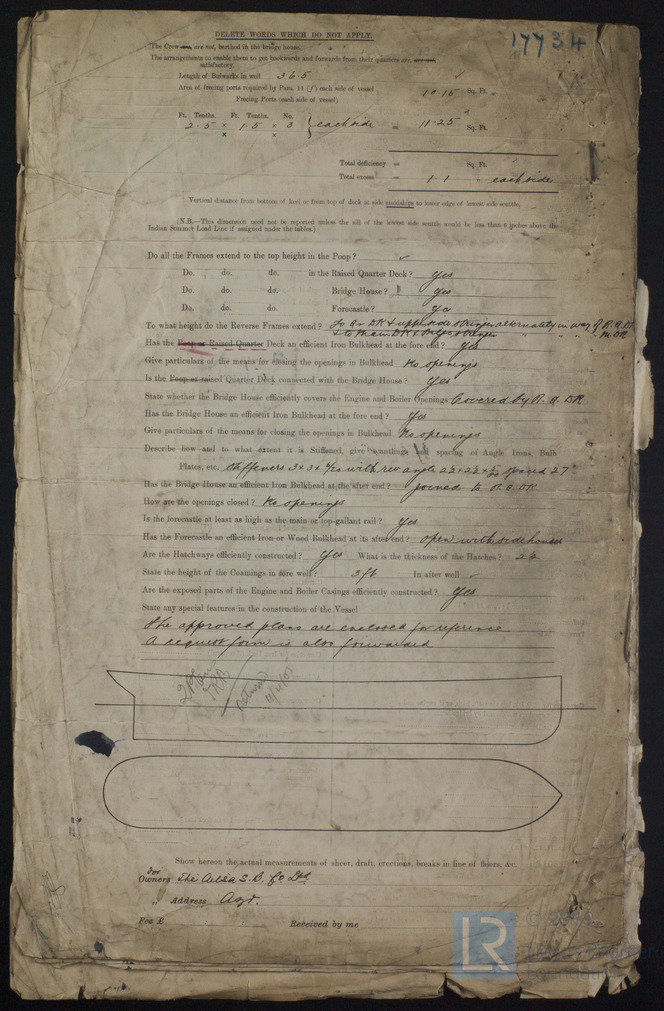 DELETE WORDS WHICH DO NOT APPLY.
17734
The Crew are, are not, berthed in the bridge house.
The arrangements to enable them to get backwards and forwards from their quarters are,
satisfactory.
Length of Bulwarks in well 36.5
Area of freeing ports required by Para. 11 (f) each side of vessel 10.15 Sq. Ft.
Freeing Ports (each side of vessel)
Ft. Tenths. Ft. Tenths. No.
2.5 × 1.5 × 3 } each side = 11.25 Sq. Ft.
× ×
Total deficiency = Sq. Ft.
Total excess = 1.1 " each side
Vertical distance from bottom of keel or from top of deck at side amidships to lower edge of lowest side scuttle,
(N.B.—This dimension need not be reported unless the sill of the lowest side scuttle would be less than 6 inches above the
Indian Summer Load Line if assigned under the tables.)
Do all the Frames extend to the top height in the Poop?
Do. do. do. in the Raised Quarter Deck? Yes
Do. do. do. Bridge House? Yes
Do. do. do. Forecastle? Yes
To what height do the Reverse Frames extend? To Qr DK & upper side stringer alternately in way of R.Q.DK
& to main DK & " " " " M.DK
Has the Poop or Raised Quarter Deck an efficient Iron Bulkhead at the fore end? Yes
Give particulars of the means for closing the openings in Bulkhead No openings
Is the Poop or raised Quarter Deck connected with the Bridge House? Yes
State whether the Bridge House efficiently covers the Engine and Boiler openings Covered by R.Q.DK
Has the Bridge House an efficient Iron Bulkhead at the fore end? Yes
Give particulars of the means for closing the openings in Bulkhead No openings
Describe how and to what extent it is Stiffened, give scantlings and spacing of Angle Irons, Bulb
Plates, etc. Stiffeners 3 × 3 × with rev angle spaced 27"
Has the Bridge House an efficient Iron Bulkhead at the after end? joined to R.Q.DK
How are the openings closed? No openings
Is the forecastle at least as high as the main or top-gallant rail? Yes
Has the Forecastle an efficient Iron or Wood Bulkhead at its after end? open with side houses
Are the Hatchways efficiently constructed? Yes What is the thickness of the Hatches? 2½
State the height of the Coamings in fore well? 3 ft In after well
Are the exposed parts of the Engine and Boiler Casings efficiently constructed? Yes
State any special features in the construction of the Vessel
The approved plans are enclosed for reference
A request form is also forwarded
Show hereon the actual measurements of sheer, draft, erections, breaks in line of floors, &c.
For
Owners The Ailsa S.B. Co Ltd
" Address Ayr.
Fee £ Received by me
LR